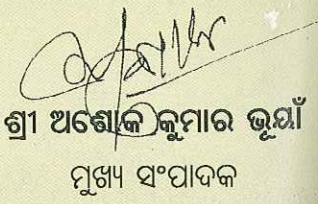 ଶ୍ରୀ ଅଶୋକ କୁମାର ଭୂୟାଁ
ମୁଖ୍ୟ ସଂପାଦକ